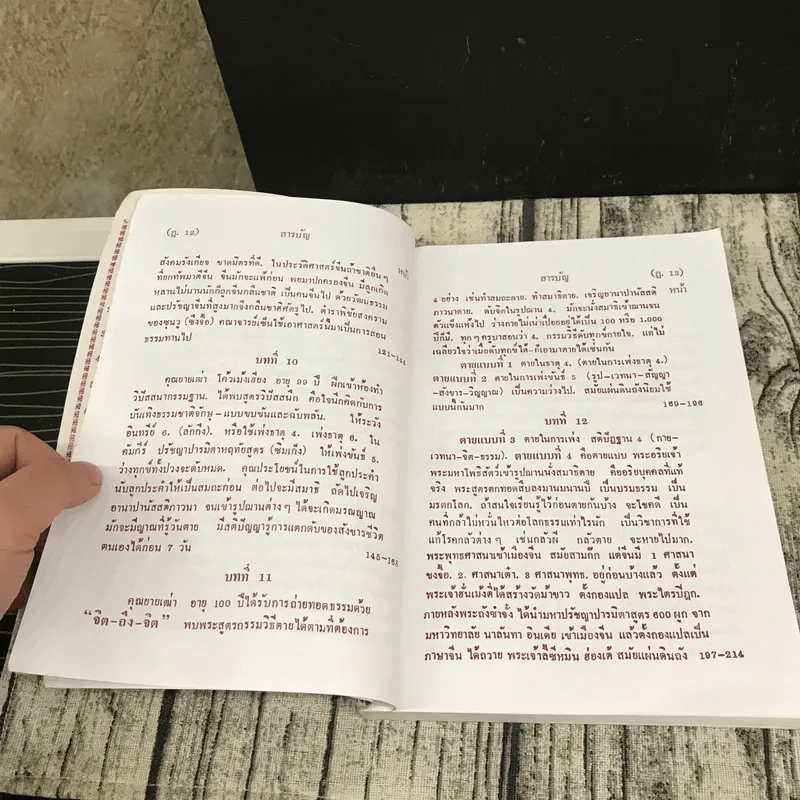 (ฎ. 12) สารบัญ
หน้า
สังคมรังเกียจ ขาดมิตรที่ดี. ในประวัติศาสตร์จีนถ้าชาติอื่นๆ
ที่ยกทัพมาตีจีน จีนมักจะแพ้ก่อน พอมาปกครองจีน มีลูกเกิด
หลานไม่นานนักก็ถูกจีนกลืนชาติ เป็นคนจีนไป ด้วยวัฒนธรรม
และปรัชญาจีนที่สูงมากจึงกลืนชาติศัตรูไป. ตำราพิชัยสงคราม
ของซุนวู (ซึงจื้อ) คณาจารย์เซ็นใช้เอาศาสตร์นี้มาเป็นการสอน
ธรรมทานไป 121-144
บทที่ 10
คุณยายเฒ่า โค้วเม้งเฮียง อายุ 99 ปี ฝึกเข้าห้องทำ
วิปัสสนากรรมฐาน. ได้พบสูตรวิปัสสนึก คือใจนึกคิดกับการ
บันเทิงธรรมชาติจักษุ-แบบขบขันและฉับพลัน. ให้ระวัง
อินทรีย์ 6. (ลักกึง). หรือใช้เพ่งธาตุ 4. เพ่งธาตุ 6. ใน
คัมภีร์ ปรัชญาปารมิตาหฤทัยสูตร (ซิมเก็ง) ให้เพ่งขันธ์ 5.
ว่างทุกข์ทั้งปวงจะดับหมด. คุณประโยชน์ในการใช้ลูกประคำ
นับลูกประคำให้เป็นสมถะก่อน ต่อไปจะมีสมาธิ ถัดไปเจริญ
อานาปานัสสติภาวนา จนเข้ารูปฌานต่างๆ ได้จะเกิดมรณญาณ
มักจะมีญาณที่รู้วันตาย มีสติปัญญารู้การแตกดับของสังขารชีวิต
ตนเองได้ก่อน 7 วัน 145-168
บทที่ 11
คุณยายเฒ่า อายุ 100 ปีได้รับการถ่ายทอดธรรมด้วย
“จิต-ถึง-จิต” พบพระสูตรกรรมวิธีตายได้ตามที่ต้องการ
สารบัญ (ฎ. 13)
หน้า
4 อย่าง เช่นทำสมถะตาย. ทำสมาธิตาย. เจริญอานาปานัสสติ
ภาวนาตาย. ดับจิตในรูปฌาน 4. มักจะนั่งสมาธิเข้าฌานจน
ตัวแข็งแห้งไป ร่างกายไม่เน่าเปื่อยอยู่ได้เป็น 100 หรือ 1.000
ปีก็มี. ทุกๆ ครูบาสอนว่า 4. กรรมวิธีดับทุกข์กายใจ. แต่ไม่
เฉลียวใจว่าเมื่อดับทุกข์ได้-ก็เอามาตายได้เช่นกัน
ตายแบบที่ 1 ตายในธาตุ 4. (ตายในการเพ่งธาตุ 4.)
ตายแบบที่ 2 ตายในการเพ่งขันธ์ 5 (รูป-เวทนา-สัญญา
-สังขาร-วิญญาณ) เป็นความว่างไป. สมัยแผ่นดินถังนิยมใช้
แบบนี้กันมาก 169-196
บทที่ 12
ตายแบบที่ 3 ตายในการเพ่ง สติปัฏฐาน 4 (กาย-
เวทนา-จิต-ธรรม). ตายแบบที่ 4 คือตายแบบ พระอริยเจ้า
พระมหาโพธิสัตว์เข้ารูปฌานนั่งสมาธิตาย คืออริยบุคคลที่แท้
จริง พระสูตรตกทอดสืบลงมานมนานปี เป็นบรมธรรม เป็น
มรดกโลก. ถ้าสนใจเรียนรู้ไว้ก่อนตายกันบ้าง จะโชคดี เป็น
คนที่กล้าไม่หวั่นไหวต่อโลกธรรมเท่าไรนัก เป็นวิชาการที่ใช้
แก้โรคกลัวต่างๆ เช่นกลัวผี กลัวตาย จะหายไปมาก.
พระพุทธศาสนาเข้าเมืองจีน สมัยสามก๊ก แต่จีนมี 1 ศาสนา
ขงจื้อ. 2. ศาสนาเต๋า. 3 ศาสนาพุทธ. อยู่ก่อนบ้างแล้ว ตั้งแต่
พระเจ้าฮั่นเม้งตี่ได้สร้างวัดม้าขาว ตั้งกองแปล พระไตรปิฎก.
ภายหลังพระถังซำจั๋ง ได้นำมหาปรัชญาปารมิตาสูตร 600 ผูก จาก
มหาวิทยาลัย นาลันทา อินเดีย เข้าเมืองจีน แล้วตั้งกองแปลเป็น
ภาษาจีน ได้ถวาย พระเจ้าลี้ซีหมิน ฮ่องเต้ สมัยแผ่นดินถัง 197-214